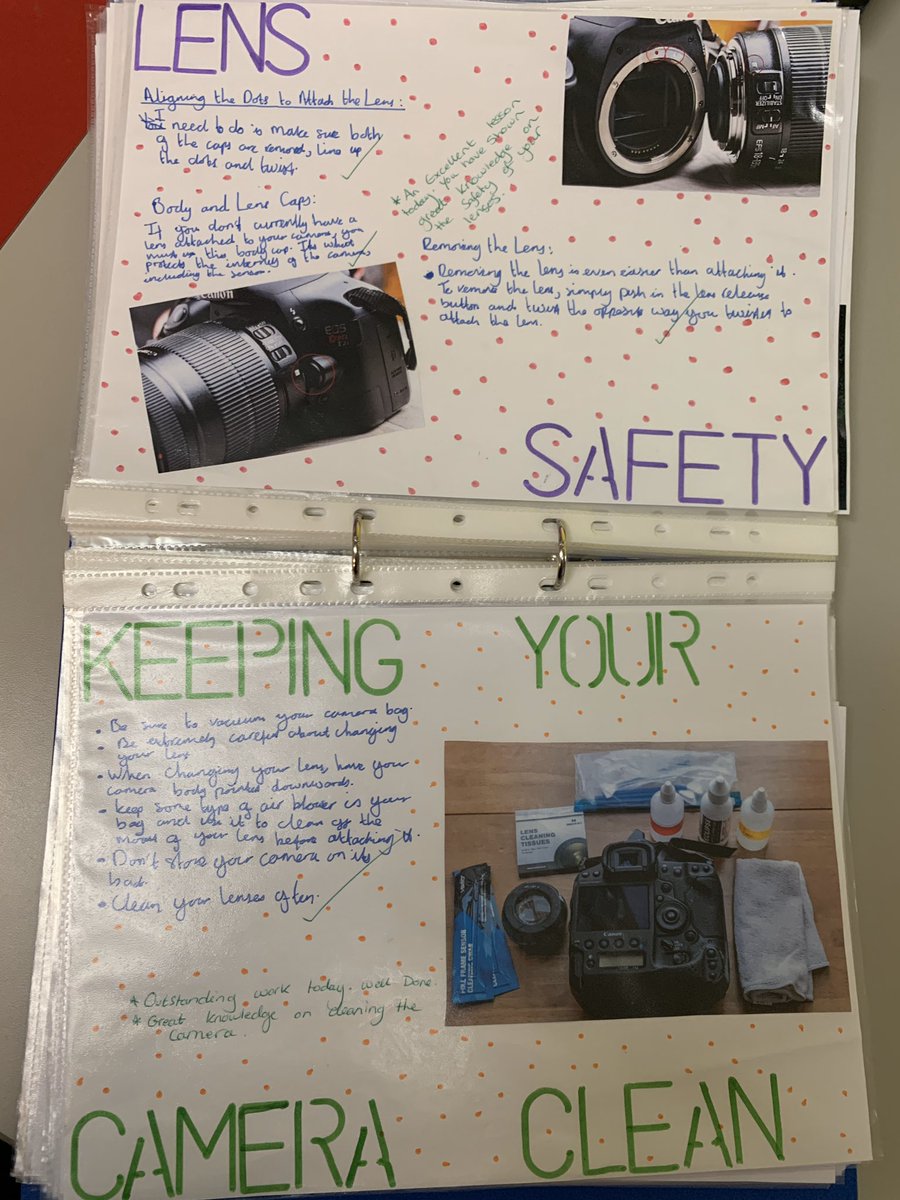 LENS
Aligning the Dots to Attach the Lens:
I
need to do is make sure both
of the caps are removed, line up
the dots and twist.
* An Excellent lesson
today, you have shown
great knowledge on
the Safety of your
lenses.
Body and Lens Caps:
If you don't currently have a
lens attached to your camera, you
must use the body cap. Its what
protects the internals of the camera
including the sensor.
Canon
STABILIZER
ON
OFF
AF
MF
EFS 18-135
Removing the Lens:
• Removing the lens is even easier than attaching it.
To remove the lens, simply push in the lens release
button and twist the opposite way you twisted to
attach the lens.
Canon
EOS
SAFETY
KEEPING YOUR
• Be sure to vacuum your camera bag.
• Be extremely careful about changing
your lens
• When changing your lens, have your
camera body pointed downwards.
• Keep some type of air blower is your
bag and use it to clean off the
mount of your lens before attaching it.
• Don't store your camera on its
back.
• Clean your lenses often.
LENS
CLEANING
TISSUES
FULL FRAME SENSOR
CLEANING SWAB
Canon
* Outstanding work today. well Done.
* Great knowledge on cleaning the
Camera.
CAMERA CLEAN